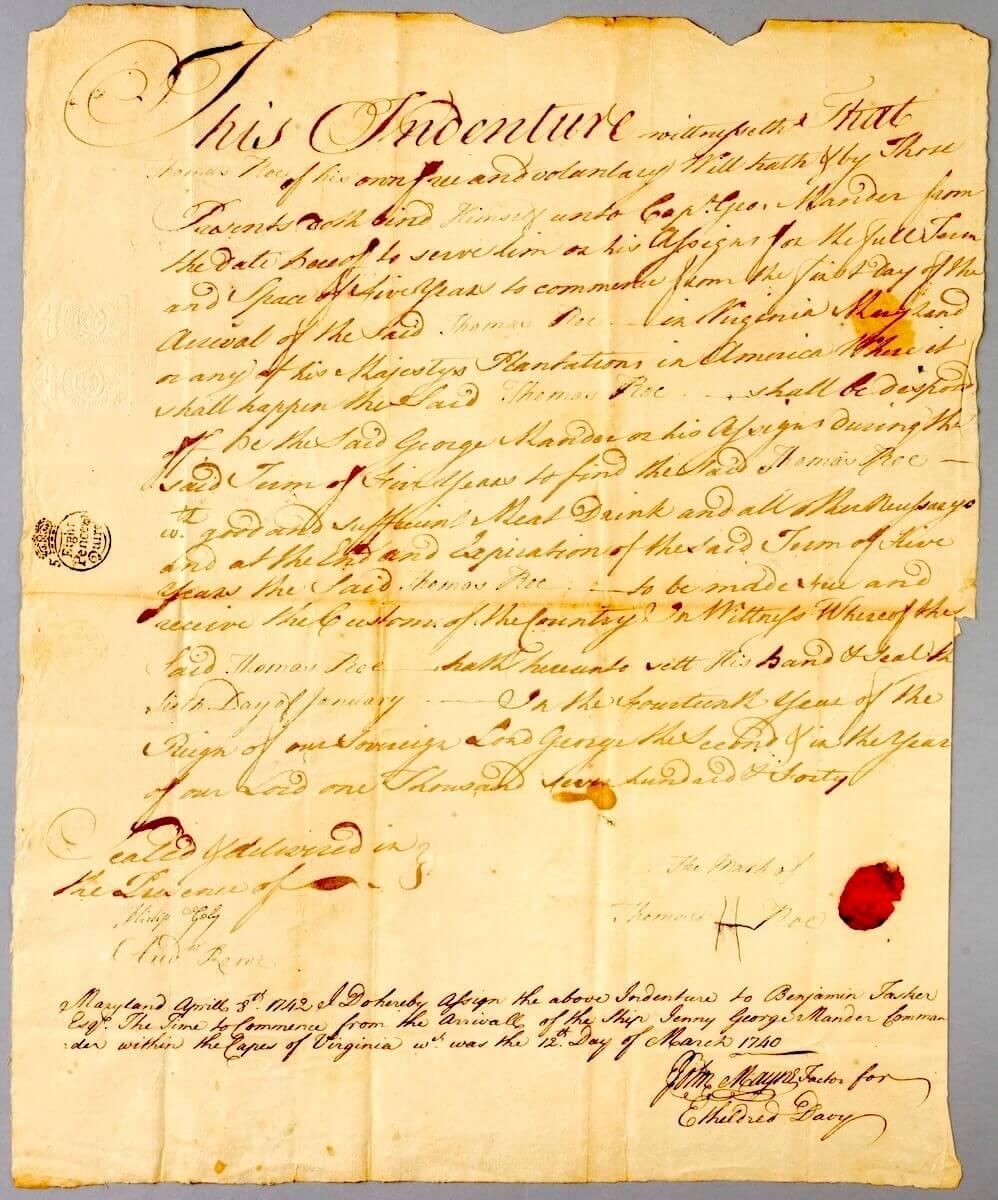 This Indenture wittnesseth That
Thomas Roe of his own free and voluntary Will hath & by These
Presents doth bind Himself unto Capt. Geo. Mander from
the date hereof to serve him or his Assigns for the full Term
and Space of Five Years to commence from the first Day of the
Arival of the Said Thomas Roe in Virginia Maryland
or any of his Majestys Plantations in America Where it
shall happen the Said Thomas Roe shall be disposd
of he the Said George Mander or his Assigns during the
said Term of Five Years to find the Said Thomas Roe
wth good and sufficient Meat Drink and all other
and at the End and Expiration of the said Term of Five
Years the Said Thomas Roe to be made free and
receive the Custom of the Country In Wittness Whereof the
Said Thomas Roe hath hereunto sett His hand & Seal the
Day of January In the Fourteenth Year of the
Reign of our Sovereign Lord George the Second & in the Year
of our Lord one Thousand seven hundred & Forty
Sealed & delivered in
the Presence of
Philip
Andw
The Mark of
Thomas Roe
Eight
Pence
Maryland Aprill 8th 1742 I Do hereby Assign the above Indenture to Benjamin Tasker
Esqr. The Time to Commence from the Arrivall of the Ship Jenny George Mander Comman
der within the Capes of Virginia wch was the 12th Day of March 1740
John Mayne Factor for
Etheldred Davy